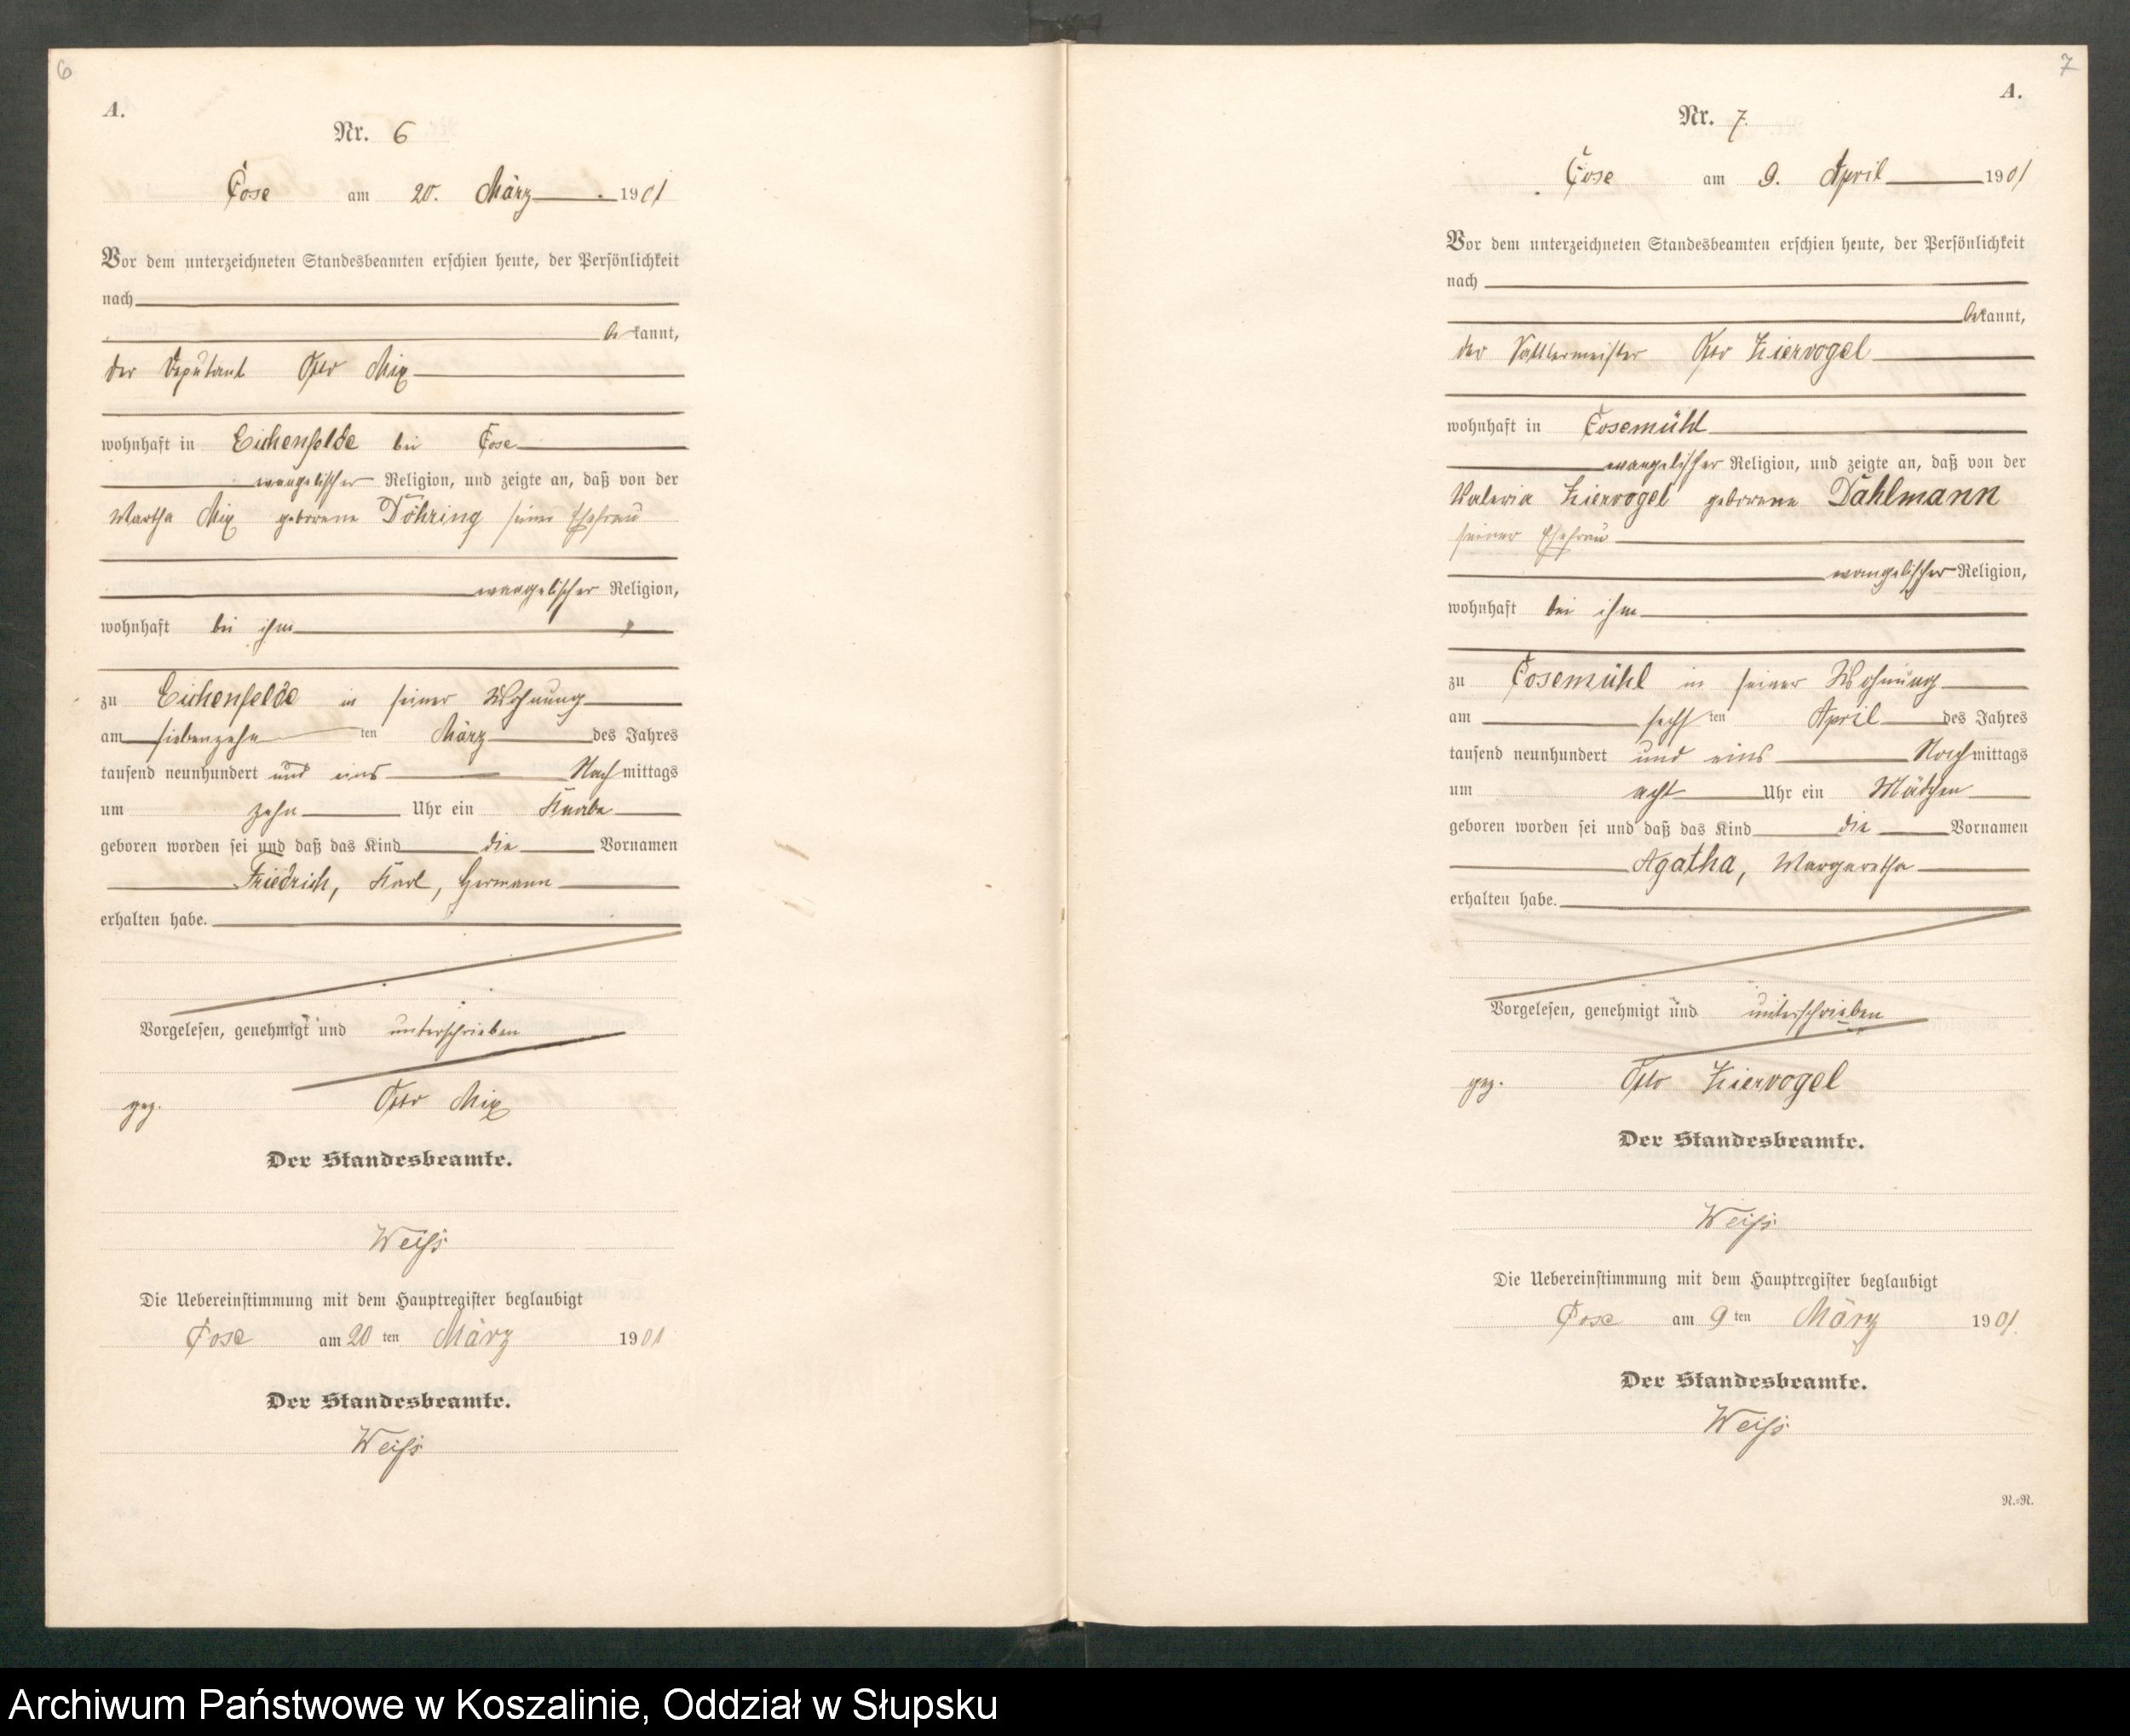 6
A.
Nr. 6
Cose am 20. März 1901
Vor dem unterzeichneten Standesbeamten erschien heute, der Persönlichkeit
nach
be kannt,
der Deputant Otto Mix
wohnhaft in Eichenfelde bei Cose
evangelischer Religion, und zeigte an, daß von der
Martha Mix geborene Döhring seiner Ehefrau
evangelischer Religion,
wohnhaft bei ihm
zu Eichenfelde in seiner Wohnung
am siebenzehn ten März des Jahres
tausend neunhundert und eins Nachmittags
um zehn Uhr ein Knabe
geboren worden sei und daß das Kind die Vornamen
Friedrich, Karl, Hermann
erhalten habe.
Vorgelesen, genehmigt und unterschrieben
gez. Otto Mix
Der Standesbeamte.
Weiß
Die Uebereinstimmung mit dem Hauptregister beglaubigt
Cose am 20 ten März 1901
Der Standesbeamte.
Weiß
7
A.
Nr. 7.
Cose am 9. April 1901
Vor dem unterzeichneten Standesbeamten erschien heute, der Persönlichkeit
nach
bekannt,
der Sattlermeister Otto Ziervogel
wohnhaft in Cosemühl
evangelischer Religion, und zeigte an, daß von der
Valeria Ziervogel geborene Dahlmann
seiner Ehefrau
evangelischer Religion,
wohnhaft bei ihm
zu Cosemühl in seiner Wohnung
am sechs ten April des Jahres
tausend neunhundert und eins Nachmittags
um acht Uhr ein Mädchen
geboren worden sei und daß das Kind die Vornamen
Agatha, Margaretha
erhalten habe.
Vorgelesen, genehmigt und unterschrieben
gez. Otto Ziervogel
Der Standesbeamte.
Weiß
Die Uebereinstimmung mit dem Hauptregister beglaubigt
Cose am 9 ten März 1901.
Der Standesbeamte.
Weiß
N.=N.
Archiwum Państwowe w Koszalinie, Oddział w Słupsku